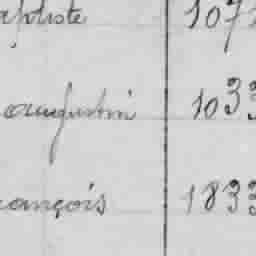 aptiste 107
Augustin 1033
rançois 1833